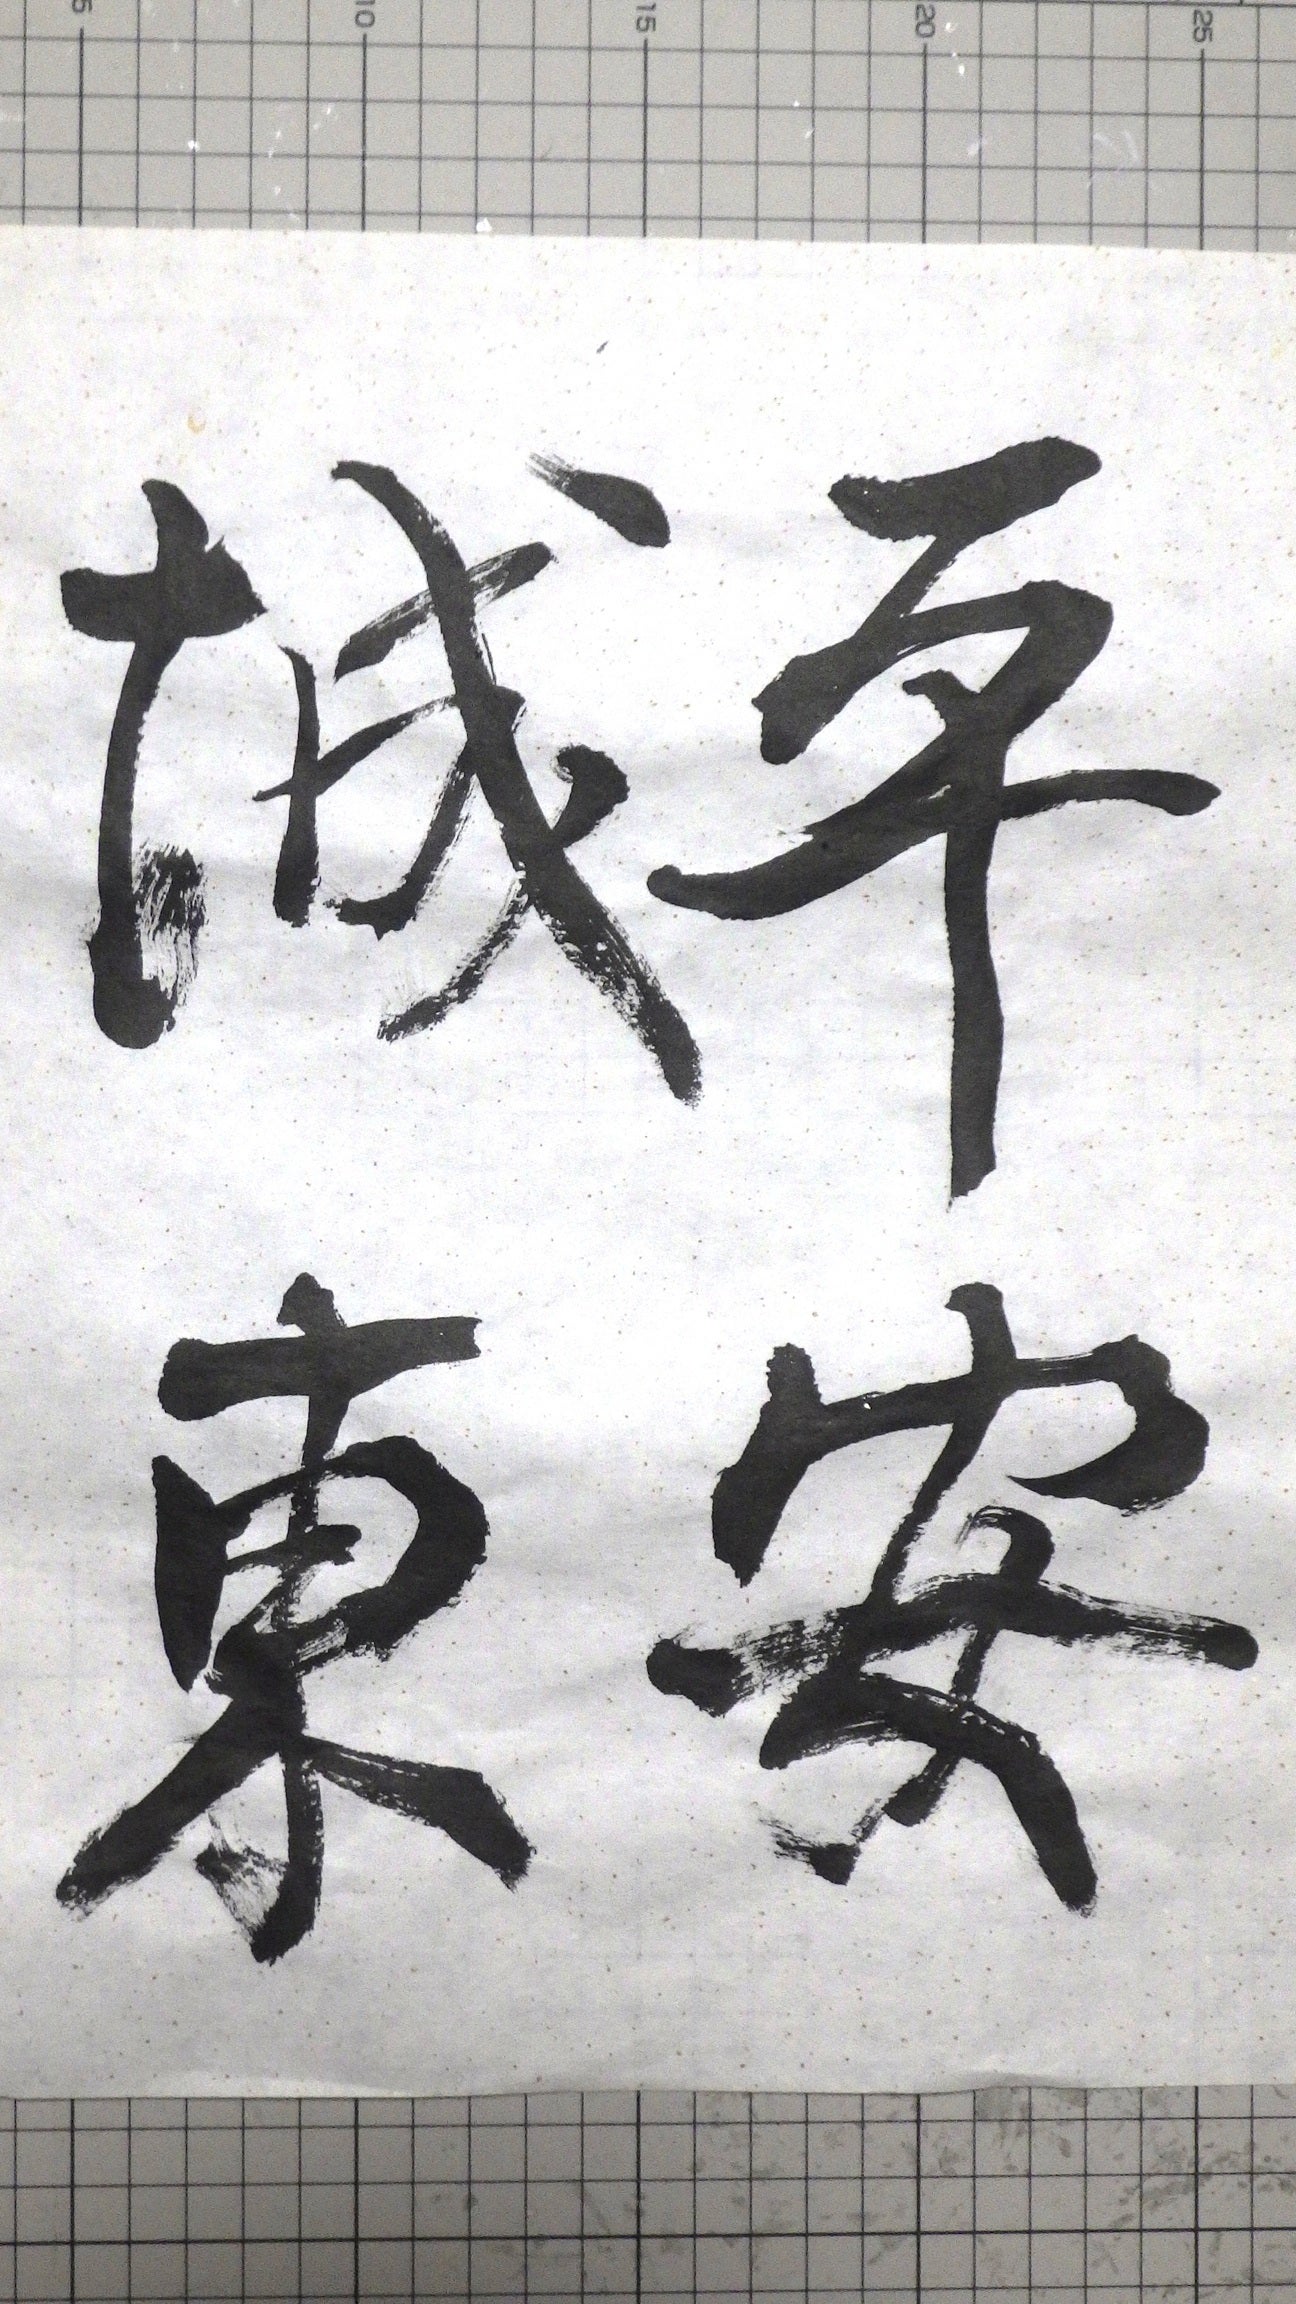 平安
城東
5 10 15 20 25